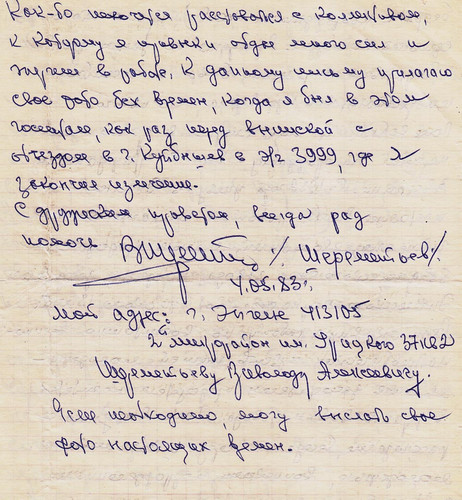 Как-бы не хотел расстоватся с коллективом,
к которому я привык, отдав много сил и
энергии в работе. К данному письму прилагаю
свое фото тех времен, когда я был в этом
госпитале, как раз перед выпиской с
отъездом в г. Куйбышев в Э/г 3999, где я
закончил излечение.
С дружеским приветом, всегда рад
помочь /Шереметьев/.
4.05.83 г.
мой адрес: г. Энгельс 413105
2й микрорайон им. Урицкого 37 кв 2
Шереметьеву Всеволоду Алексеевичу.
Если необходимо, могу выслать свое
фото настоящих времен.